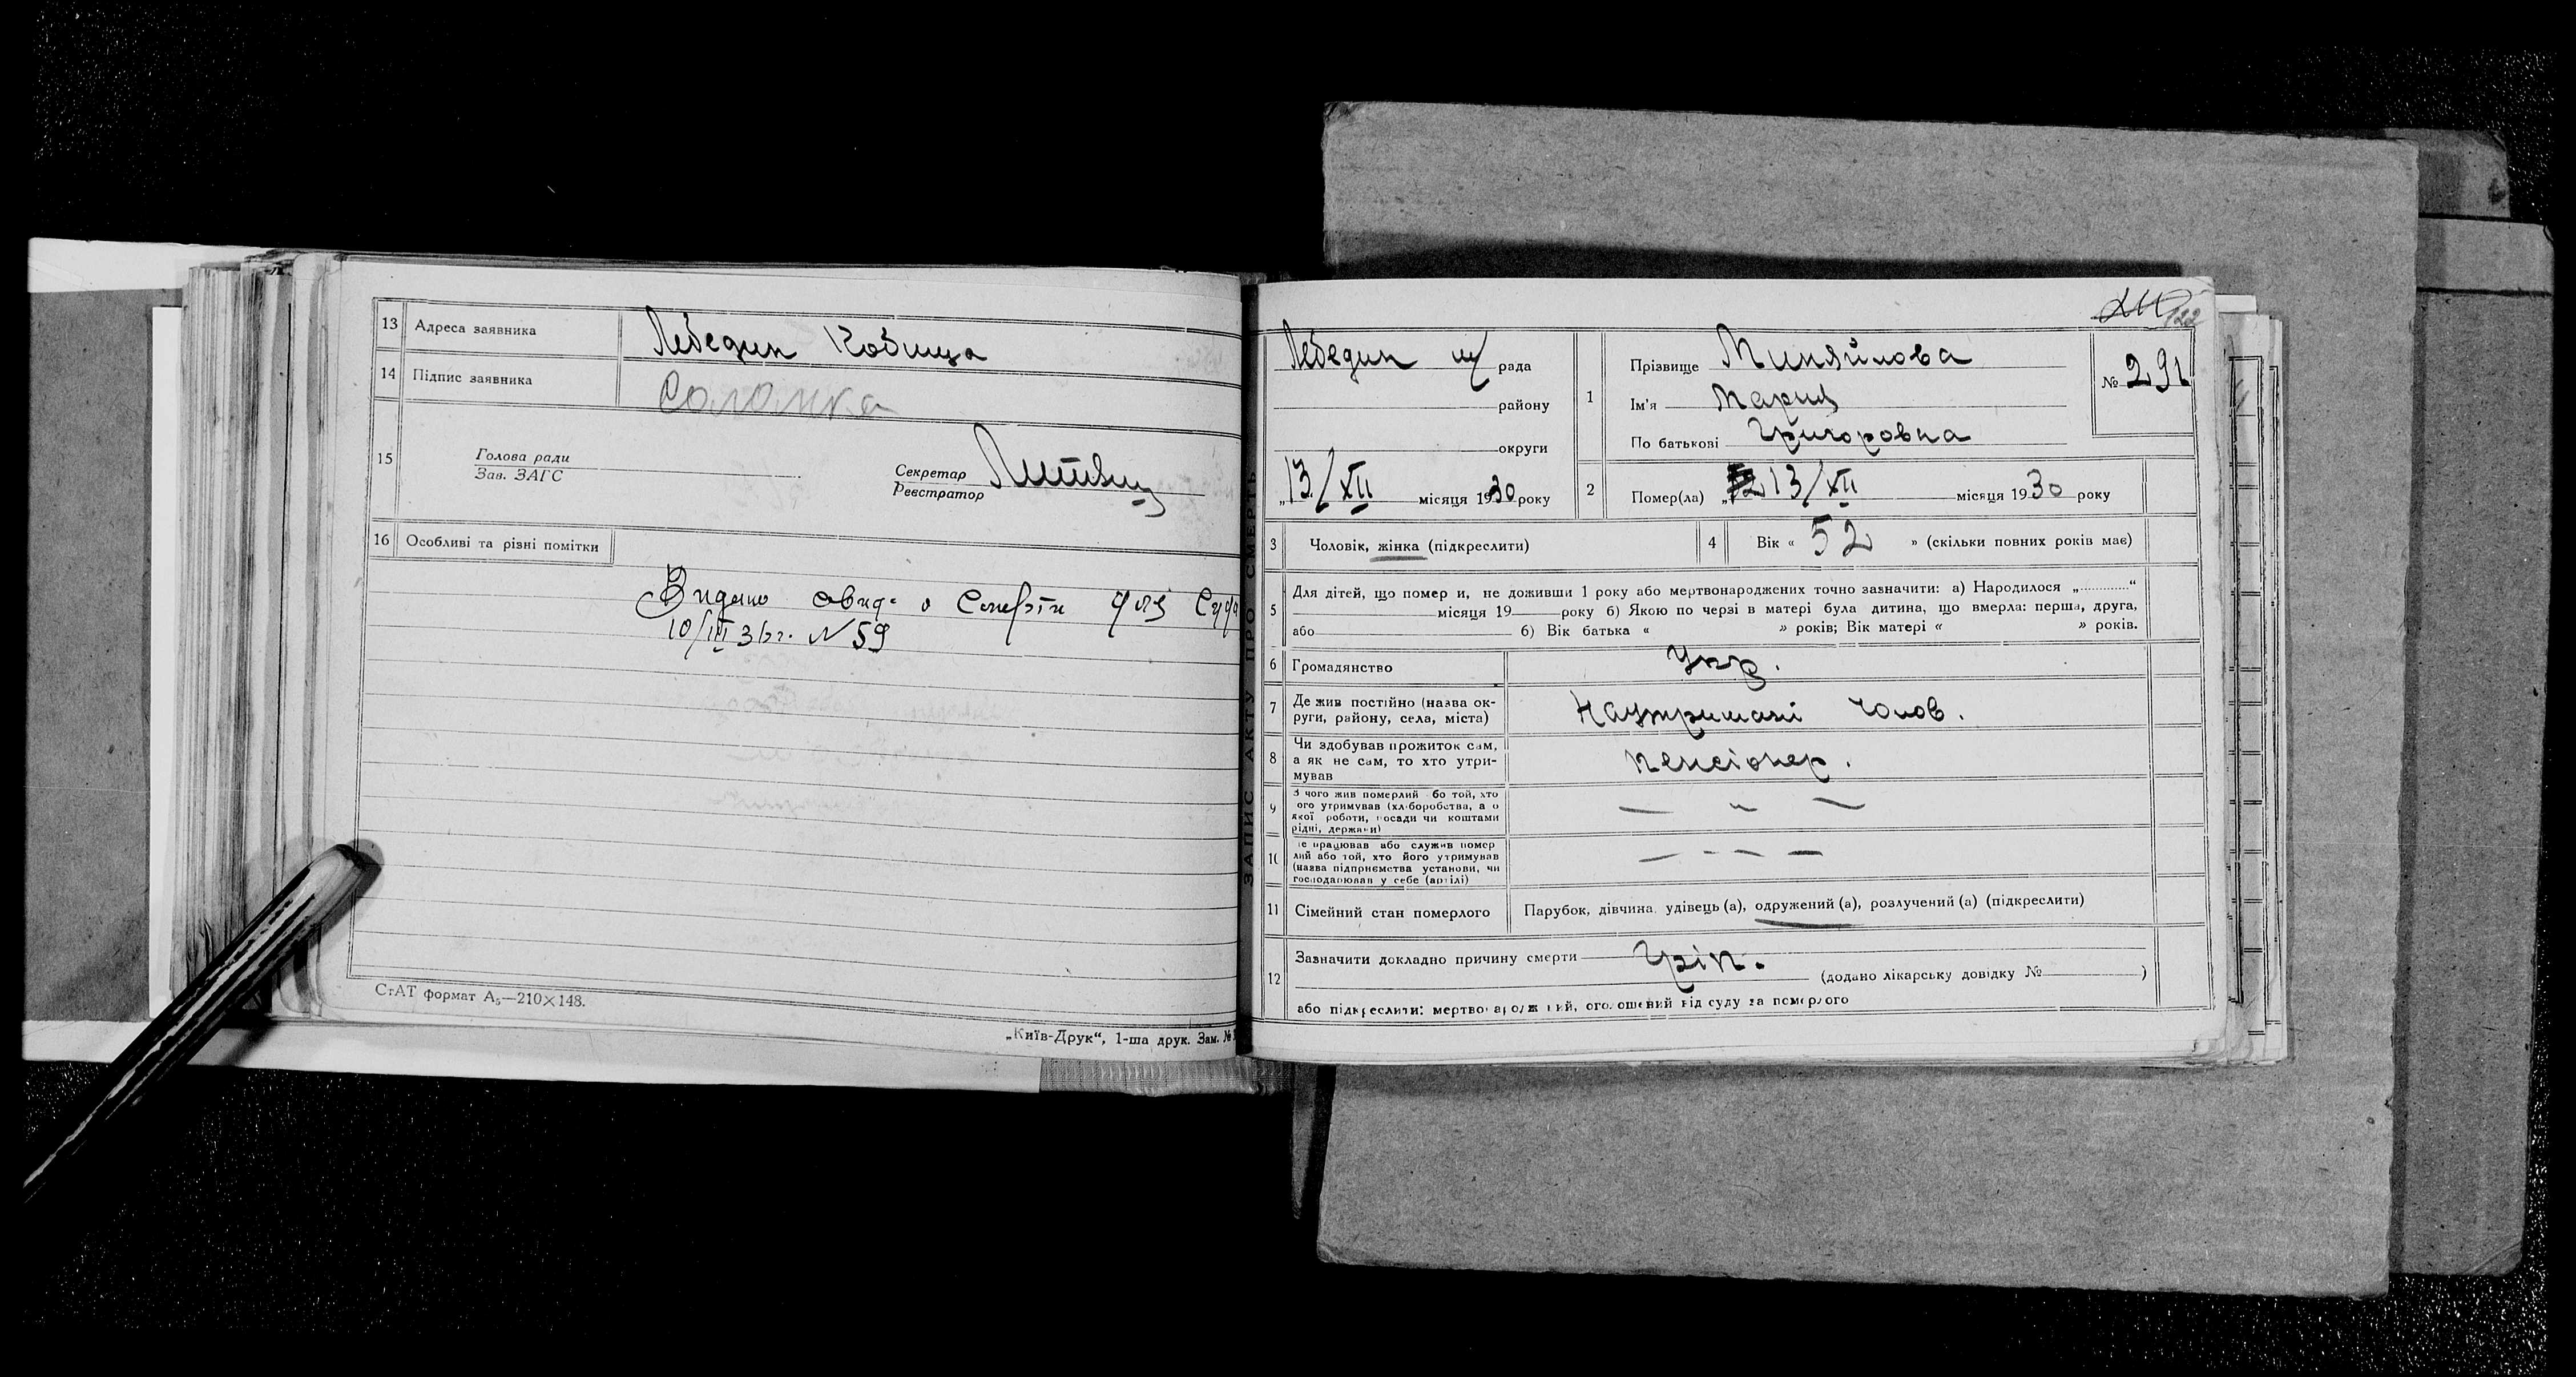 13 Адреса заявника Лебедин Кобища
14 Підпис заявника Соломка
15 Голова ради
Зав. ЗАГС
Секретар
Реєстратор
16 Особливі та різні помітки
Видано свид. о Смерти для
10/III 36г. N 59
СтАТ формат А₅—210×148.
„Київ-Друк“, 1-ша друк. Зам. №
ЗАПИС АКТУ ПРО СМЕРТЬ
122
Лебедин м/ рада
району
округи
„13/XII місяця 1930 року
1 Прізвище Миняйлова
Ім'я Мария
По батькові Григоровна
№ 291
2 Помер(ла) „ 13/XII місяця 1930 року
3 Чоловік, жінка (підкреслити)
4 Вік « 52 » (скільки повних років має)
5 Для дітей, що помер и, не доживши 1 року або мертвонароджених точно зазначити: а) Народилося „............“
місяця 19 року б) Якою по черзі в матері була дитина, що вмерла: перша, друга,
або б) Вік батька « » років; Вік матері « » років.
6 Громадянство Укр.
7 Де жив постійно (назва ок-
руги, району, села, міста) Наутримані чолов.
8 Чи здобував прожиток сам,
а як не сам, то хто утри-
мував пенсіонер.
9 З чого жив померлий бо той, хто
ого утримував (хліборобства, а о
якої роботи, посади чи коштами
рідні, держави) — " —
10 е працював або служив помер
лий або той, хто його утримував
(назва підприємства установи, чи
господарював у себе (артілі) — - - —
11 Сімейний стан померлого Парубок, дівчина, удівець (а), одружений (а), розлучений (а) (підкреслити)
12 Зазначити докладно причину смерти Грiп.
(додано лікарську довідку № )
або підкреслити: мертвонароджений, оголошений від суду за померлого